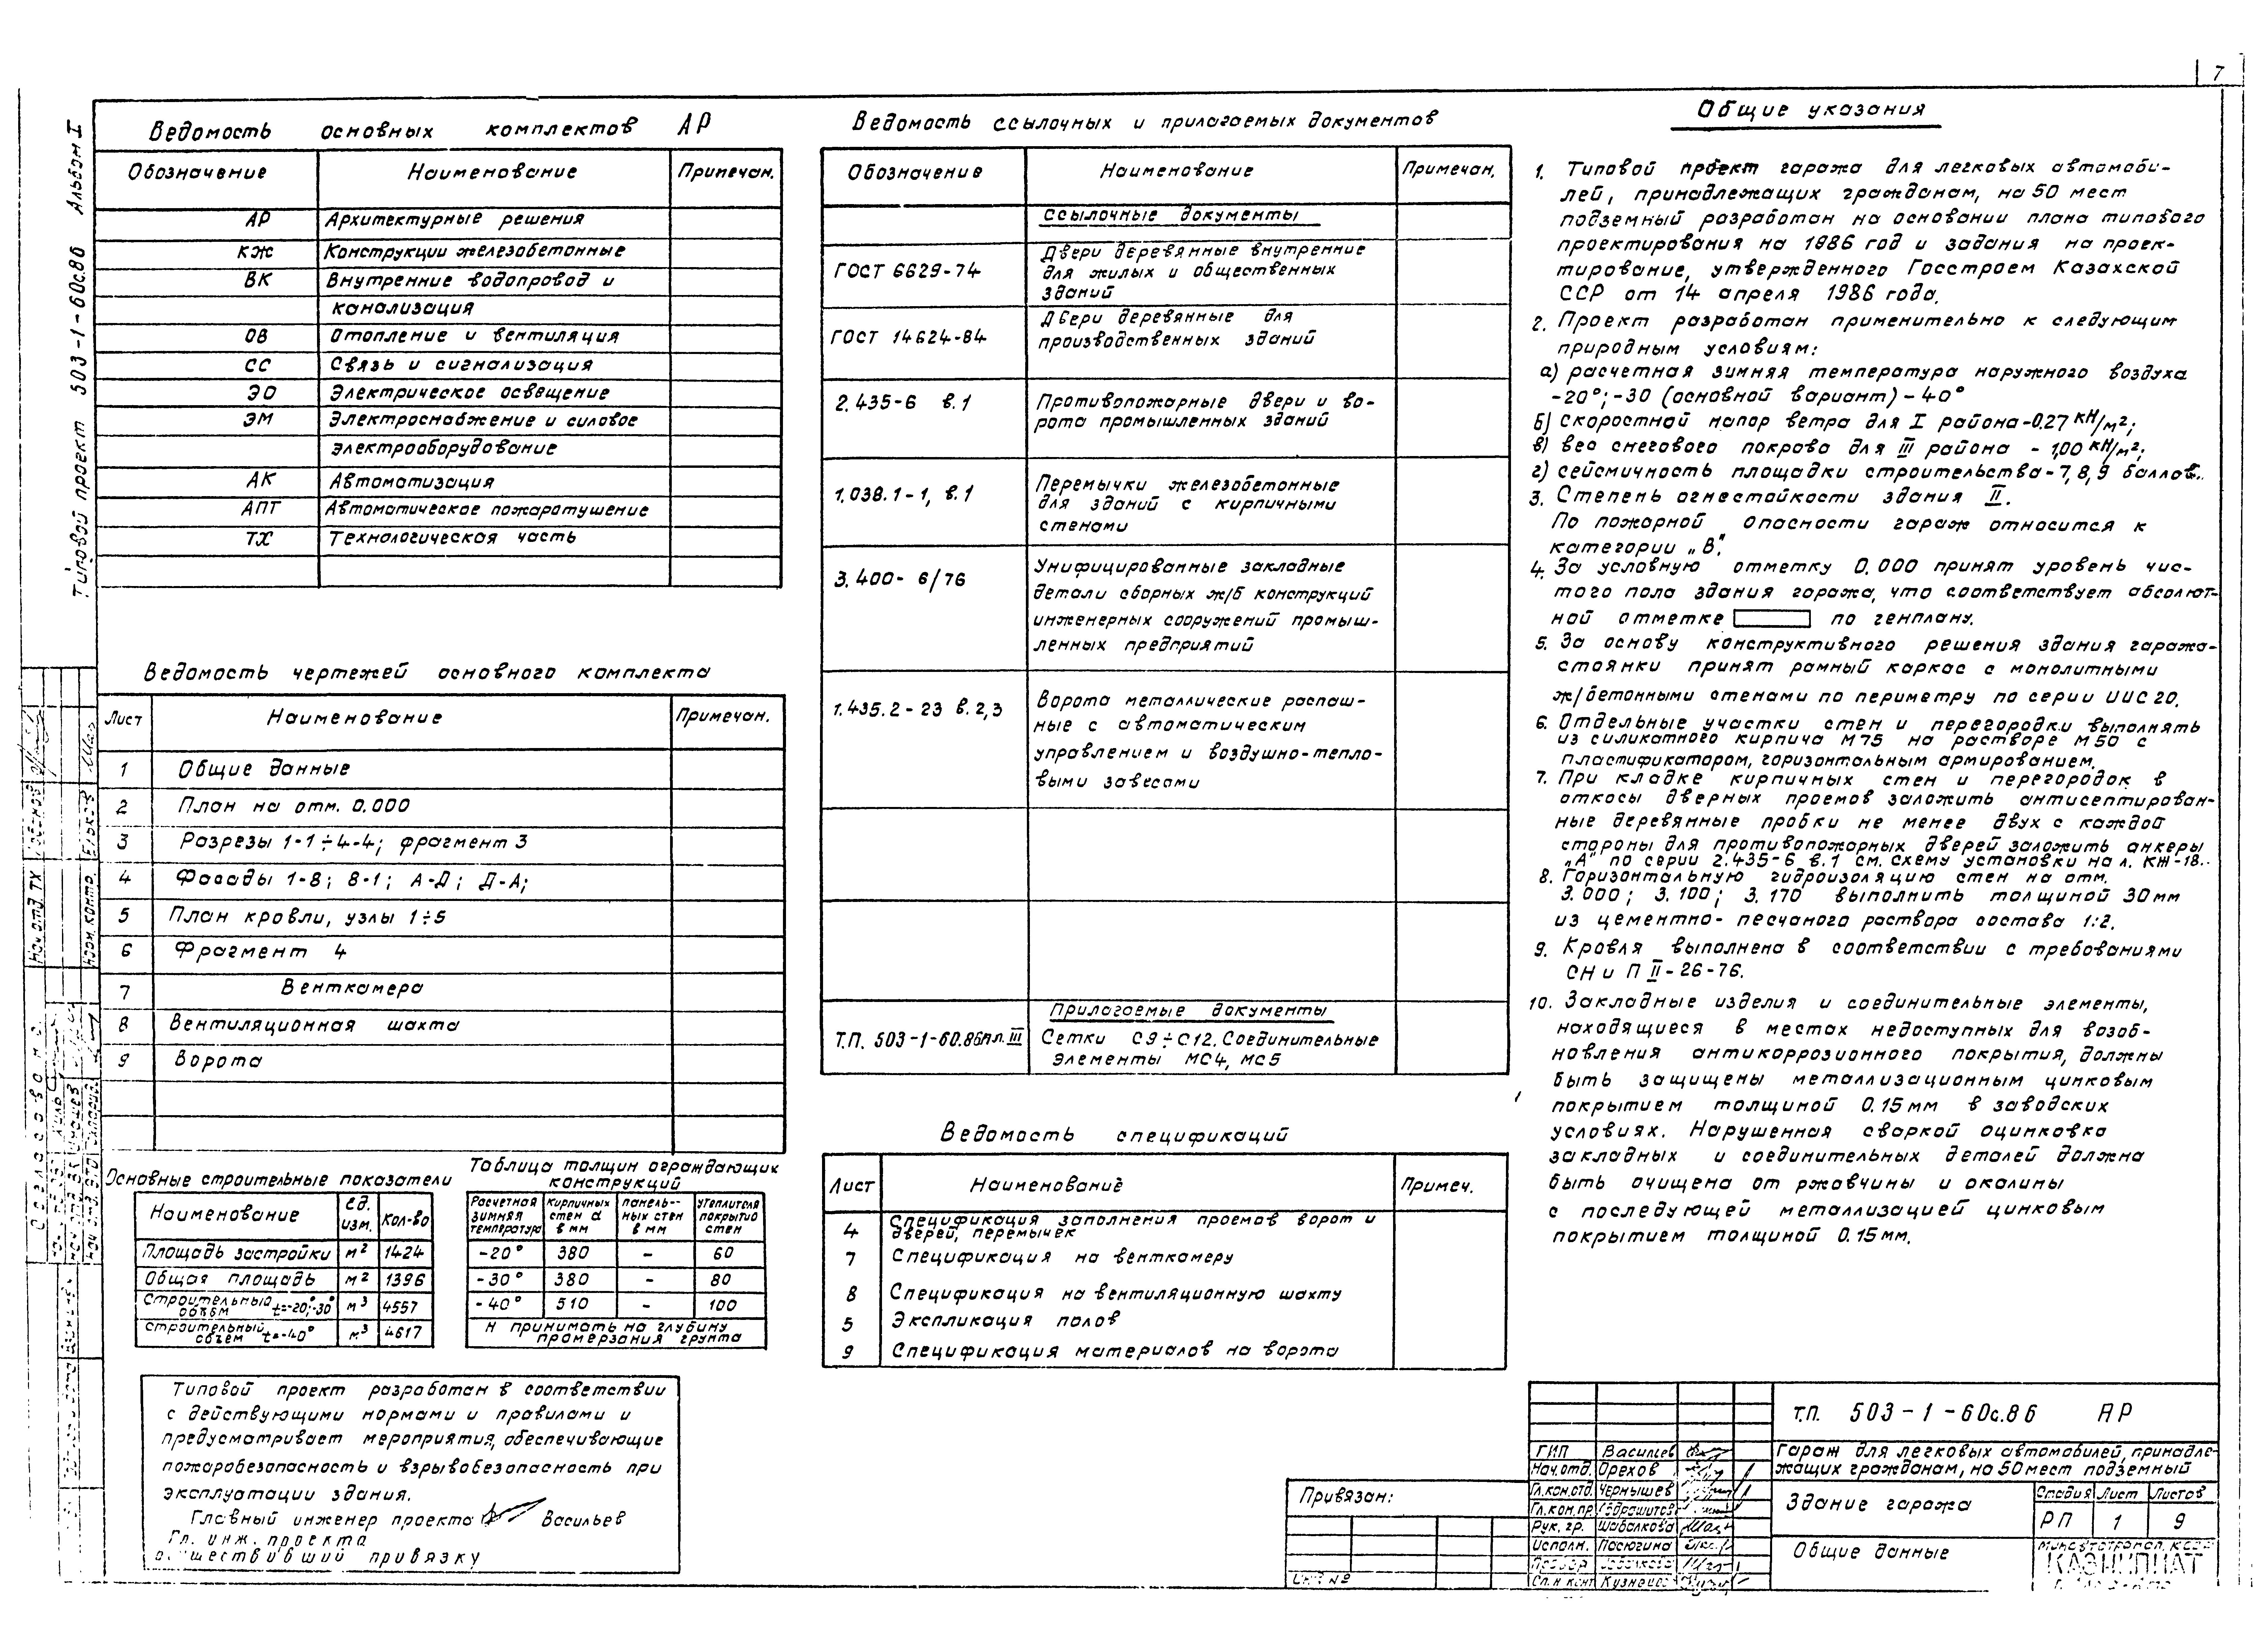 7
Типовой проект 503-1-60с.86 Альбом I
Ведомость основных комплектов АР
Обозначение Наименование Примечан.
АР Архитектурные решения
КЖ Конструкции железобетонные
ВК Внутренние водопровод и
канализация
ОВ Отопление и вентиляция
СС Связь и сигнализация
ЭО Электрическое освещение
ЭМ Электроснабжение и силовое
электрооборудование
АК Автоматизация
АПТ Автоматическое пожаротушение
ТХ Технологическая часть
Ведомость чертежей основного комплекта
Лист Наименование Примечан.
1 Общие данные
2 План на отм. 0.000
3 Разрезы 1-1÷4-4; фрагмент 3
4 Фасады 1-8; 8-1; А-Д; Д-А;
5 План кровли, узлы 1÷5
6 Фрагмент 4
7 Венткамера
8 Вентиляционная шахта
9 Ворота
Основные строительные показатели
Наименование ед. изм. Кол-во
Площадь застройки м² 1424
Общая площадь м² 1396
Строительный объем t=-20°;-30° м³ 4557
Строительный объем t=-40° м³ 4617
Таблица толщин ограждающих
конструкций
Расчетная зимняя температура кирпичных стен d в мм панель-ных стен в мм утеплителя покрытия стен
-20° 380 - 60
-30° 380 - 80
-40° 510 - 100
Н принимать на глубину
промерзания грунта
Типовой проект разработан в соответствии
с действующими нормами и правилами и
предусматривает мероприятия, обеспечивающие
пожаробезопасность и взрывобезопасность при
эксплуатации здания.
Главный инженер проекта Васильев
Гл. инж. проекта
осуществивший привязку
Ведомость ссылочных и прилагаемых документов
Обозначение Наименование Примечан.
Ссылочные документы
ГОСТ 6629-74 Двери деревянные внутренние
для жилых и общественных
зданий
ГОСТ 14624-84 Двери деревянные для
производственных зданий
2.435-6 в.1 Противопожарные двери и во-
рота промышленных зданий
1.038.1-1, в.1 Перемычки железобетонные
для зданий с кирпичными
стенами
3.400-6/76 Унифицированные закладные
детали сборных ж/б конструкций
инженерных сооружений промыш-
ленных предприятий
1.435.2-23 в.2,3 Ворота металлические распаш-
ные с автоматическим
управлением и воздушно-тепло-
выми завесами
Прилагаемые документы
Т.П. 503-1-60.86 Ал. III Сетки С9÷С12. Соединительные
элементы МС4, МС5
Ведомость спецификаций
Лист Наименование Примеч.
4 Спецификация заполнения проемов ворот и
дверей, перемычек
7 Спецификация на венткамеру
8 Спецификация на вентиляционную шахту
5 Экспликация полов
9 Спецификация материалов на ворота
Общие указания
1. Типовой проект гаража для легковых автомоби-
лей, принадлежащих гражданам, на 50 мест
подземный разработан на основании плана типового
проектирования на 1986 год и задания на проек-
тирование, утвержденного Госстроем Казахской
ССР от 14 апреля 1986 года.
2. Проект разработан применительно к следующим
природным условиям:
а) расчетная зимняя температура наружного воздуха
-20°; -30 (основной вариант) -40°
б) скоростной напор ветра для I района -0,27 кН/м²;
в) вес снегового покрова для III района - 1,00 кН/м²;
г) сейсмичность площадки строительства-7,8,9 баллов.
3. Степень огнестойкости здания II.
По пожарной опасности гараж относится к
категории „В".
4. За условную отметку 0.000 принят уровень чис-
того пола здания гаража, что соответствует абсолют-
ной отметке по генплану.
5. За основу конструктивного решения здания гаража-
стоянки принят рамный каркас с монолитными
ж/бетонными стенами по периметру по серии ИИС 20.
6. Отдельные участки стен и перегородки выполнять
из силикатного кирпича М75 на растворе М50 с
пластификатором, горизонтальным армированием.
7. При кладке кирпичных стен и перегородок в
откосы дверных проемов заложить антисептирован-
ные деревянные пробки не менее двух с каждой
стороны для противопожарных дверей заложить анкеры
„А" по серии 2.435-6 в.1 см. схему установки на л. КЖ-18.
8. Горизонтальную гидроизоляцию стен на отм.
3.000; 3.100; 3.170 выполнить толщиной 30мм
из цементно-песчаного раствора состава 1:2.
9. Кровля выполнена в соответствии с требованиями
СНиП II-26-76.
10. Закладные изделия и соединительные элементы,
находящиеся в местах недоступных для возоб-
новления антикоррозионного покрытия, должны
быть защищены металлизационным цинковым
покрытием толщиной 0.15мм в заводских
условиях. Нарушенная сваркой оцинковка
закладных и соединительных деталей должна
быть очищена от ржавчины и окалины
с последующей металлизацией цинковым
покрытием толщиной 0.15мм.
Привязан:
Инв №
Т.П. 503-1-60с.86 АР
ГИП Васильев
Нач.отд. Орехов
Гл.кон.отд. Чернышев
Гл.кон.пр.
Рук. гр. Шабалкова
Исполн. Посюгина
Гараж для легковых автомобилей, принадле-
жащих гражданам, на 50 мест подземный
Здание гаража
Стадия Лист Листов
РП 1 9
Общие данные
Согласовано:
Нач отд ТХ
Норм. контр.